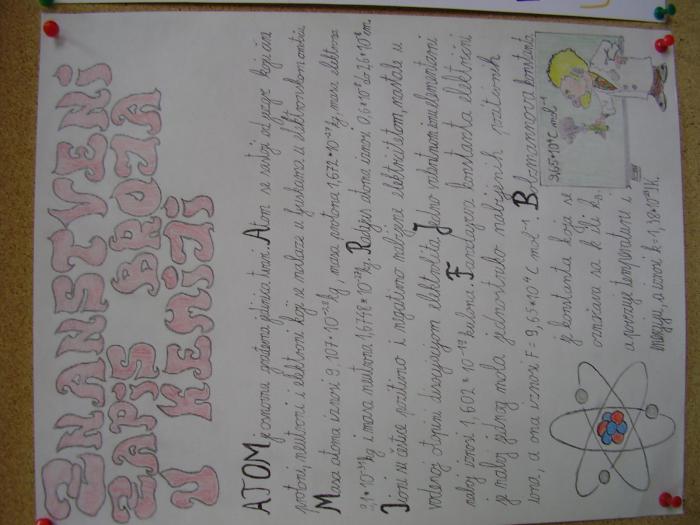 ZNANSTVENI
ZAPIS BROJA
U KEMIJI
ATOM je osnovna građevna jedinica tvari. Atom se sastoji od jezgre koju čine
protoni, neutroni i elektroni koji se nalaze u ljuskama u elektronskom omotaču.
Masa atoma iznosi 9,107*10⁻²⁸ kg, masa protona 1,672*10⁻²⁷ kg, masa elektrona
9,1*10⁻³¹ kg i masa neutrona 1,6748*10⁻²⁷ kg. Radijus atoma iznosi
Ioni su čestice pozitivno i negativno nabijene elektricitetom, nastale u
vodenoj otopini disocijacijom elektrolita. Jedno elementarni
naboj iznosi 1,602*10⁻¹⁹ kulona. Faradayeva konstanta električni
je naboj jednog mola jednostruko nabijenih pozitivnih
iona, a ona iznosi F = 9,65*10⁴ C mol⁻¹. Boltzmannova konstanta
je konstanta koja se
označava sa k ili k
a povezuje temperaturu i
energiju, a iznosi k = 1,38*10⁻²³ J/K.
9,65*10⁴ C mol⁻¹